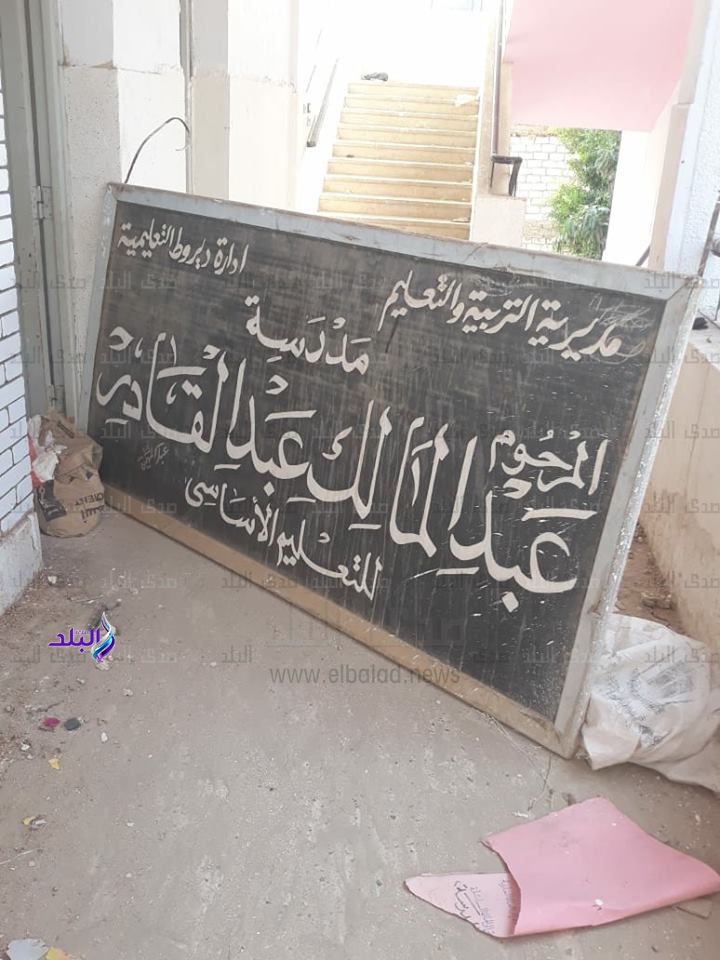 مديرية التربية والتعليم
ادارة ديروط التعليمية
مَدْرَسِة
المرْحُوم
عَبْدِ المَالِكِ عَبْدِ القَادِرْ
للتعْليم الأسَاسِى
صدى البلد
البلد
www.elbalad.news